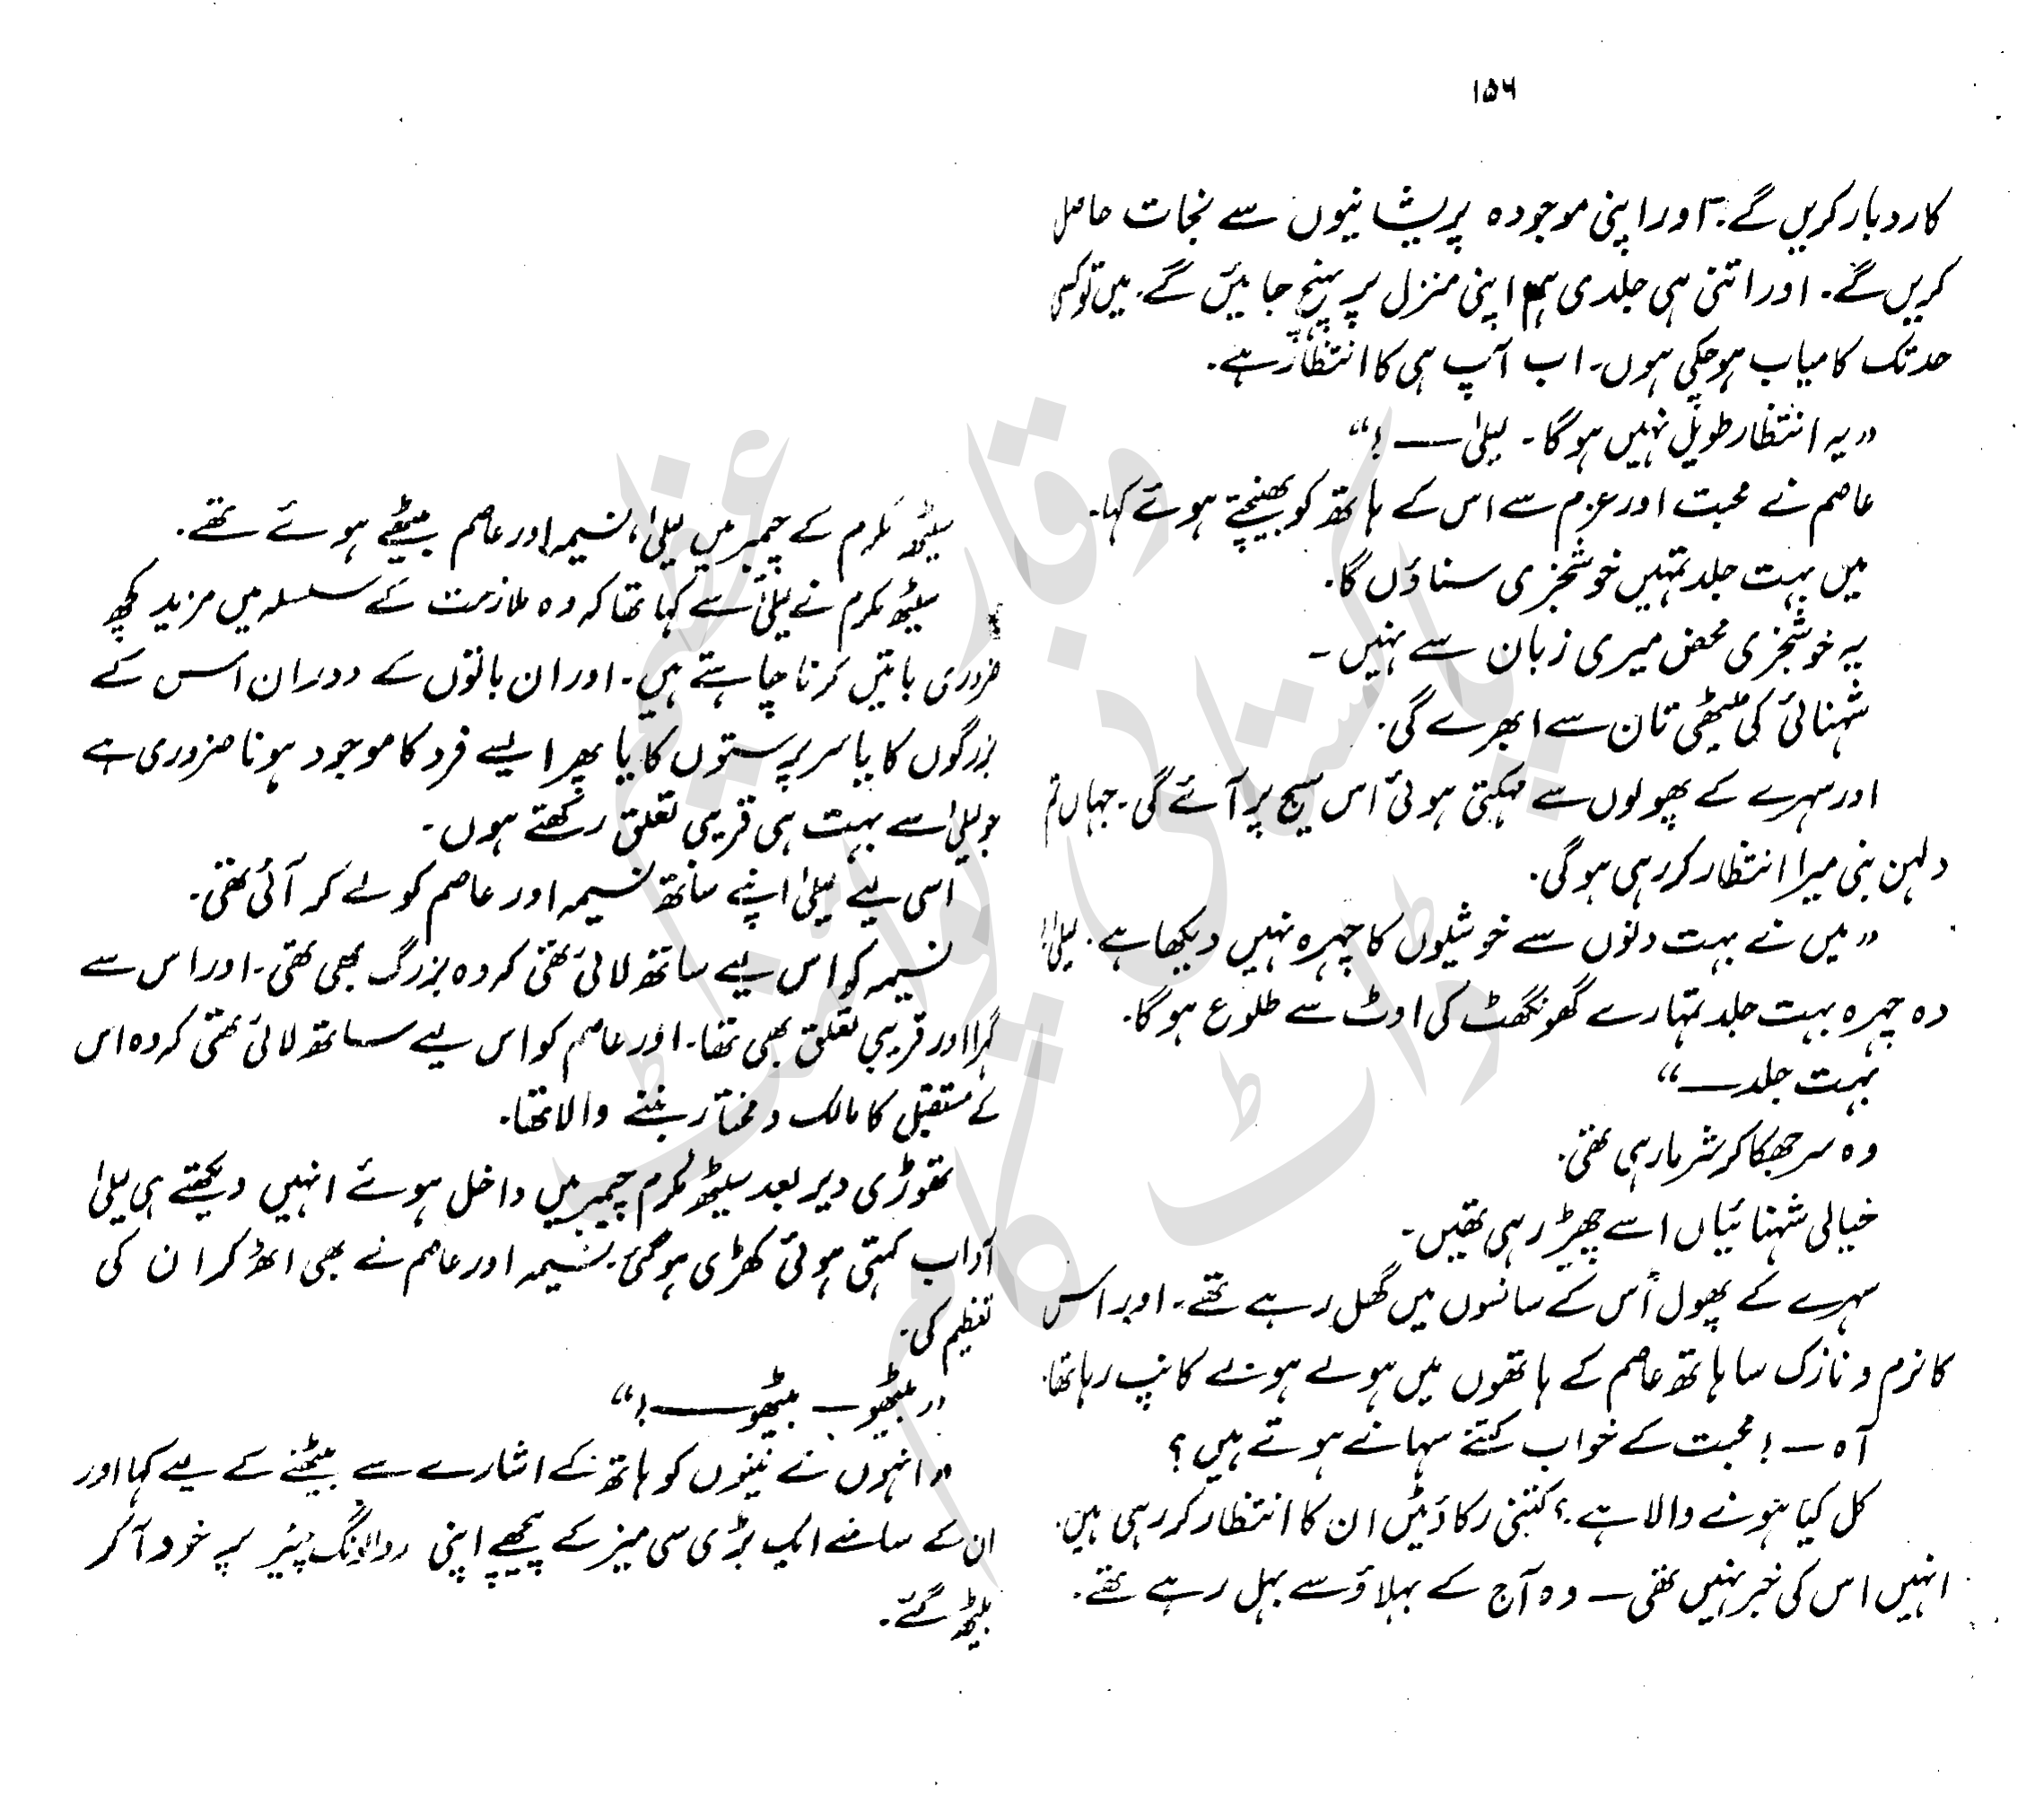 ۱۵۶
کاروبار کریں گے۔ اور اپنی موجودہ پریشانیوں سے نجات حاصل
کریں گے۔ اور اتنی ہی جلدی ہم اپنی منزل پر پہنچ جائیں گے۔ میں تو کسی
حد تک کامیاب ہو چکی ہوں۔ اب آپ ہی کا انتظار ہے۔
"یہ انتظار طویل نہیں ہو گا۔ لیلیٰ — !"
عاصم نے محبت اور عزم سے اس کے ہاتھ کو بھینچتے ہوئے کہا۔
میں بہت جلد تمہیں خوشخبری سناؤں گا۔
یہ خوشخبری محض میری زبان سے نہیں ۔
شہنائی کی میٹھی تان سے ابھرے گی۔
اور سہرے کے پھولوں سے مہکتی ہوئی اس سیج پر آئے گی۔ جہاں تم
دلہن بنی میرا انتظار کر رہی ہو گی۔
"میں نے بہت دنوں سے خوشیوں کا چہرہ نہیں دیکھا ہے۔ لیلیٰ!
وہ چہرہ بہت جلد تمہارے گھونگھٹ کی اوٹ سے طلوع ہو گا۔
بہت جلد —"
وہ سر جھکا کر شرما رہی تھی۔
خیالی شہنائیاں اسے چھیڑ رہی تھیں۔
سہرے کے پھول اُس کے سانسوں میں گھل رہے تھے۔ اور اس
کا نرم و نازک سا ہاتھ عاصم کے ہاتھوں میں ہولے ہولے کانپ رہا تھا۔
آہ — ! محبت کے خواب کتنے سہانے ہوتے ہیں؟
کل کیا ہونے والا ہے؟ کتنی رکاوٹیں ان کا انتظار کر رہی ہیں۔
انہیں اس کی خبر نہیں تھی — وہ آج کے بہلاؤ سے بہل رہے تھے۔
سیٹھ مکرم کے چیمبر میں لیلیٰ، نسیمہ اور عاصم بیٹھے ہوئے تھے۔
سیٹھ مکرم نے لیلیٰ سے کہا تھا کہ وہ ملازمت کے سلسلہ میں مزید کچھ
ضروری باتیں کرنا چاہتے ہیں۔ اور ان باتوں کے دوران اس کے
بزرگوں کا یا سرپرستوں کا یا پھر ایسے فرد کا موجود ہونا ضروری ہے
جو لیلیٰ سے بہت ہی قریبی تعلق رکھتے ہوں۔
اسی لیے لیلیٰ اپنے ساتھ نسیمہ اور عاصم کو لے کر آئی تھی۔
نسیمہ کو اس لیے ساتھ لائی تھی کہ وہ بزرگ بھی تھی۔ اور اس سے
گہرا اور قریبی تعلق بھی تھا۔ اور عاصم کو اس لیے ساتھ لائی تھی کہ وہ اس
کے مستقبل کا مالک و مختار بننے والا تھا۔
تھوڑی دیر بعد سیٹھ مکرم چیمبر میں داخل ہوئے انہیں دیکھتے ہی لیلیٰ
آداب کہتی ہوئی کھڑی ہو گئی۔ نسیمہ اور عاصم نے بھی اٹھ کر ان کی
تعظیم کی۔
"بیٹھو — بیٹھو — !"
"انہوں نے تینوں کو ہاتھ کے اشارے سے بیٹھنے کے لیے کہا اور
ان کے سامنے ایک بڑی سی میز کے پیچھے اپنی روالونگ چیئر پر خود آ کر
بیٹھ گئے۔
وقار عظیم
پاکستانی پوائنٹ
ڈاٹ کام